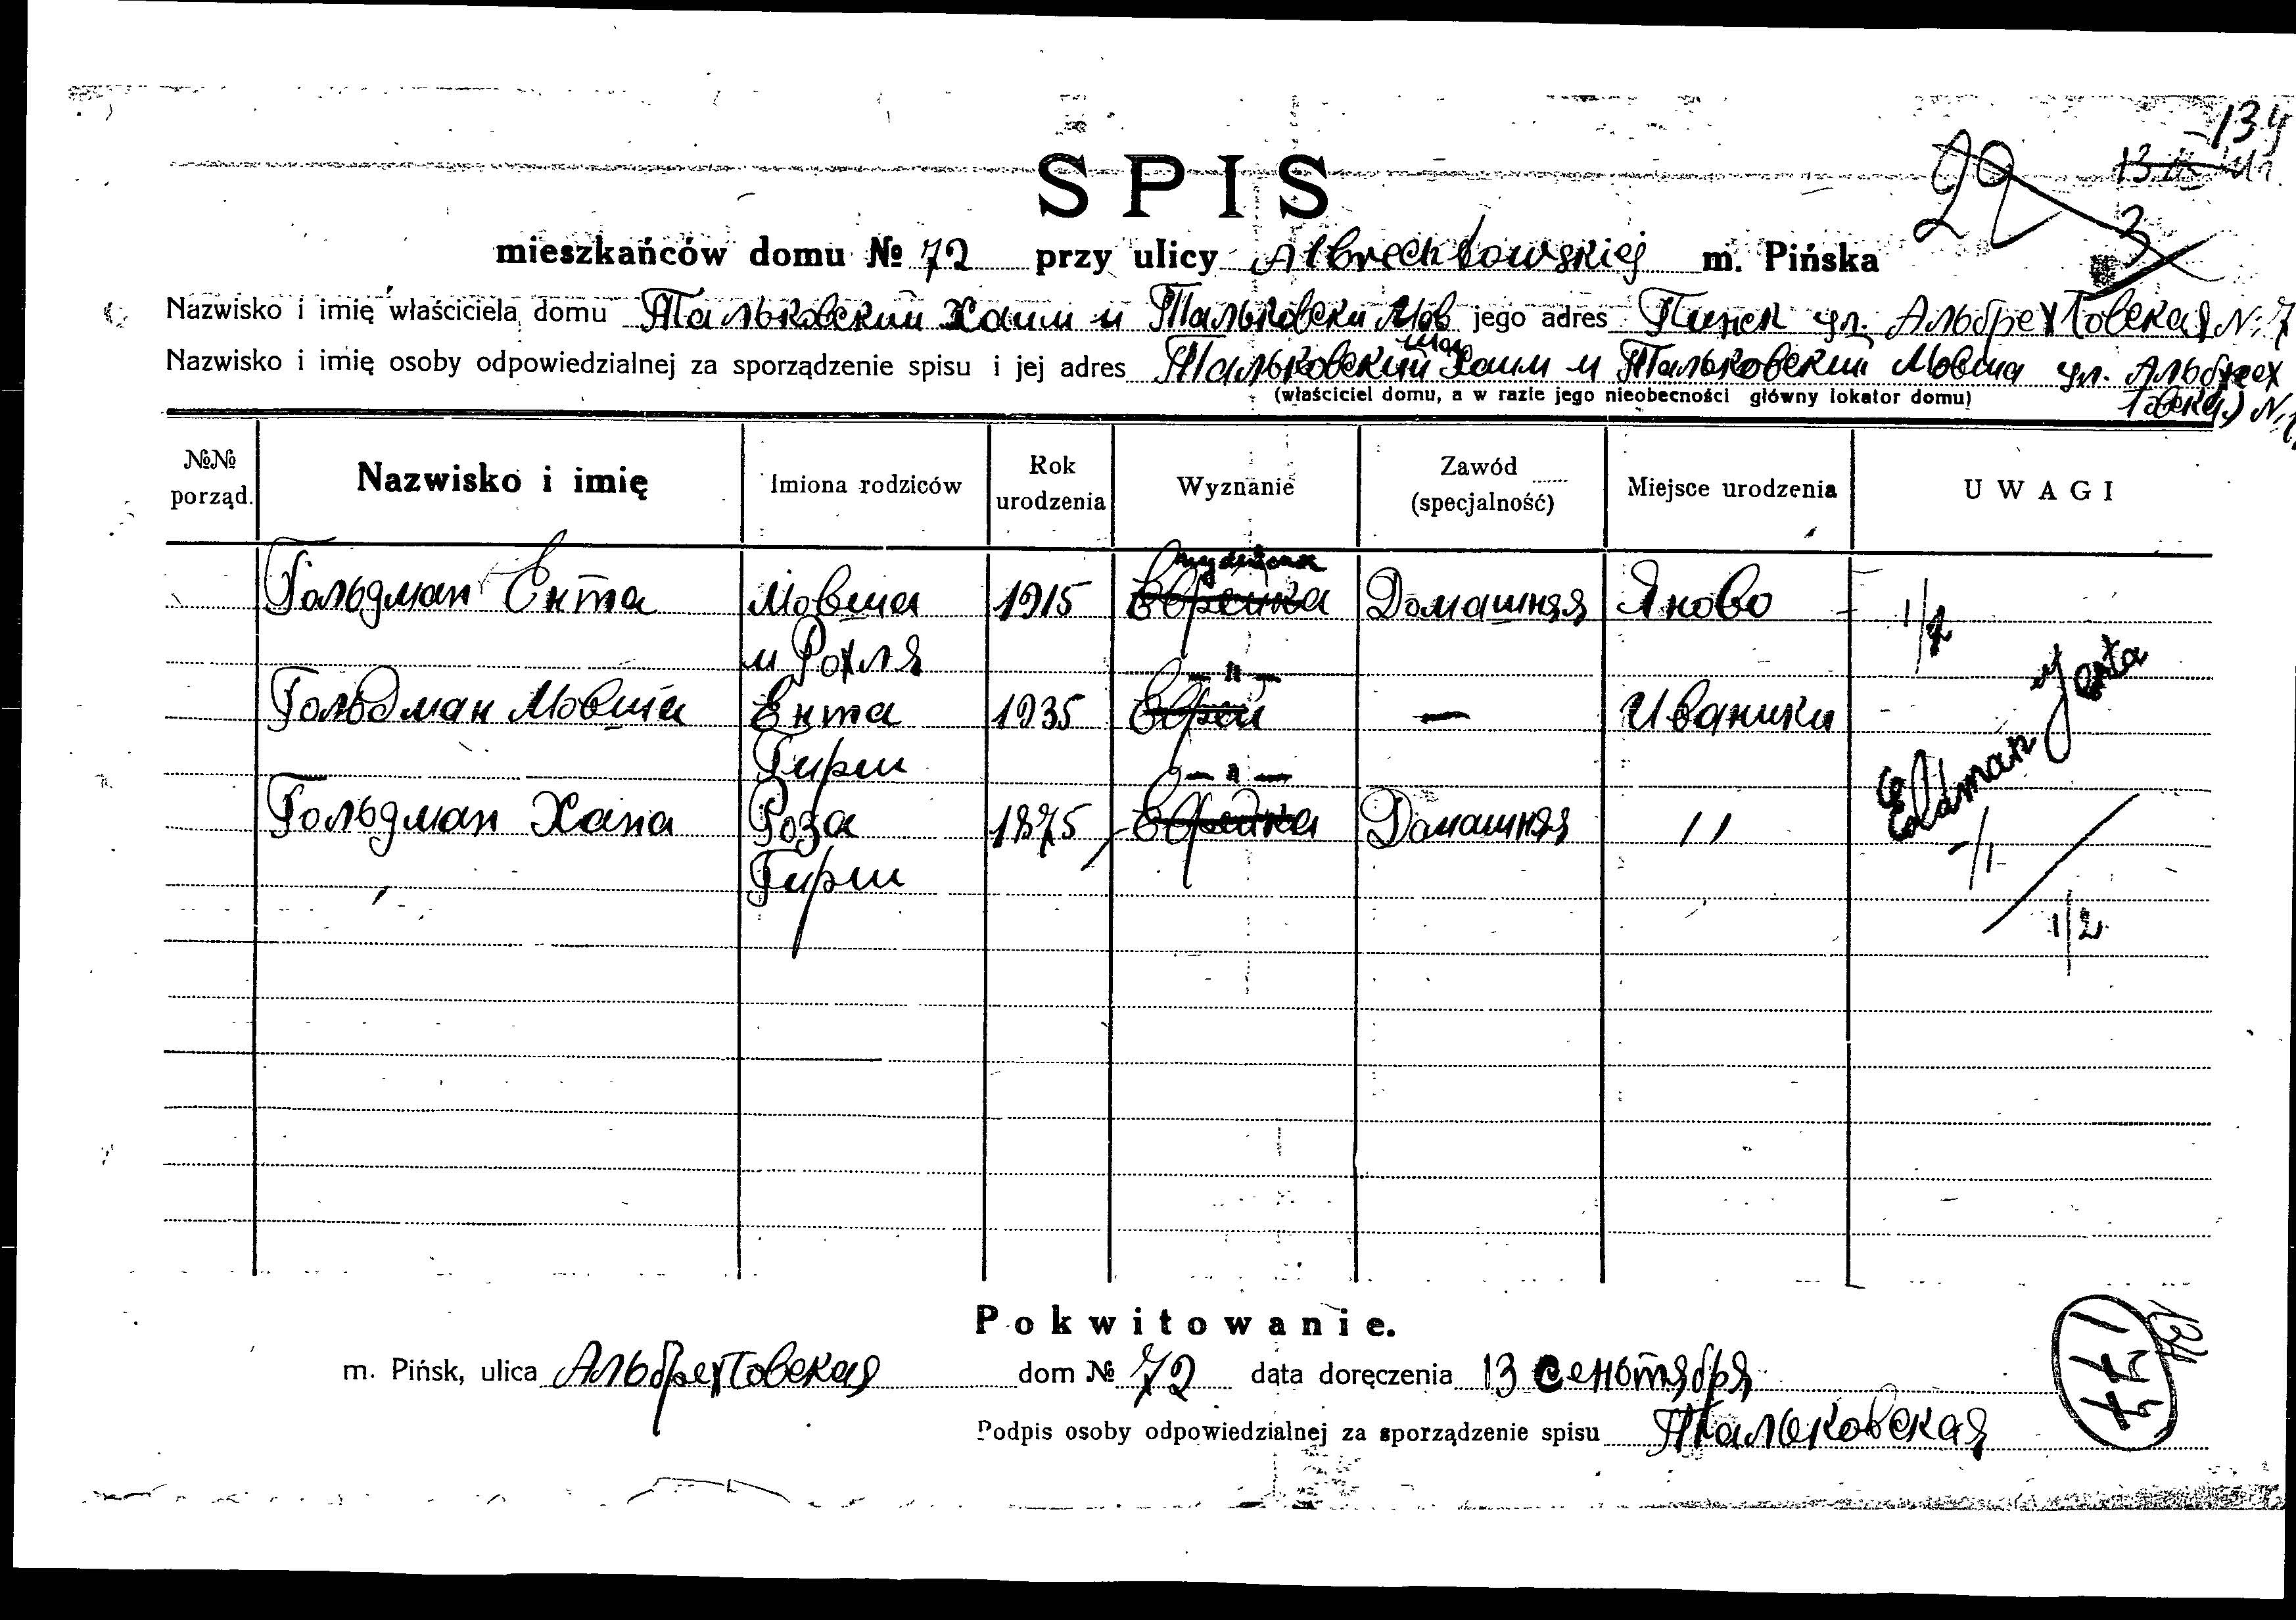 134
22
3
SPIS
mieszkańców domu № 72 przy ulicy Albrechtowskiej m. Pińska
Nazwisko i imię właściciela domu Тальковский Хаим и Тальковски Мов jego adres Пинск ул. Альбрехтовская N: 7
ша
Nazwisko i imię osoby odpowiedzialnej za sporządzenie spisu i jej adres Тальковский Хаим и Тальковский Мовша ул. Альбрех
(właściciel domu, a w razie jego nieobecności główny lokator domu) товская N.
№№ porząd. Nazwisko i imię Imiona rodziców Rok urodzenia Wyznanie Zawód (specjalność) Miejsce urodzenia UWAGI
иудейская
Гольдман Ента Мовша 1915 Еврейка Домашняя Яново 1/2
и Рохля — „ —
Гольдман Мовша Ента 1935 Еврей — Иваники
Гирш — „ —
Гольдман Хана Роза 1875 Еврейка Домашняя 11
Гирш
Eldman Jenta
-/1
1/2
Pokwitowanie.
m. Pińsk, ulica Альбрехтовская dom № 72 data doręczenia 13 сеньтября
Podpis osoby odpowiedzialnej za sporządzenie spisu Тальковская
177
134